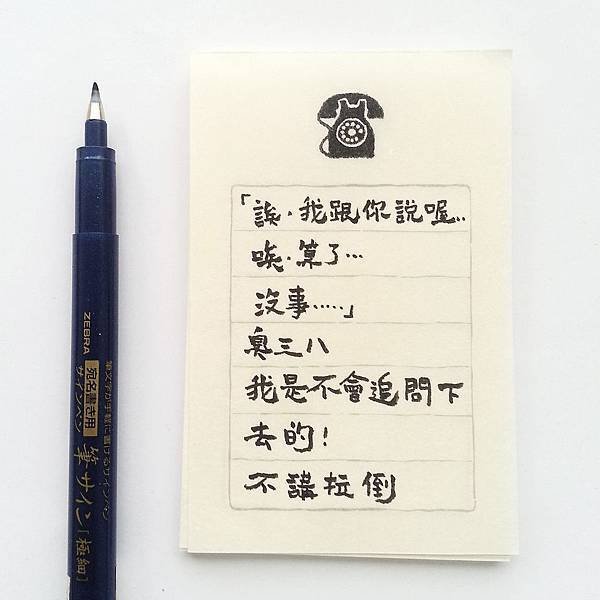 「誒．我跟你說喔..
唉．算了…
沒事……」
臭三八
我是不會追問下
去的！
不講拉倒
ZEBRA
筆文字が手軽に書けるサインペン
宛名書き用
サインペン
筆サイン「極細」